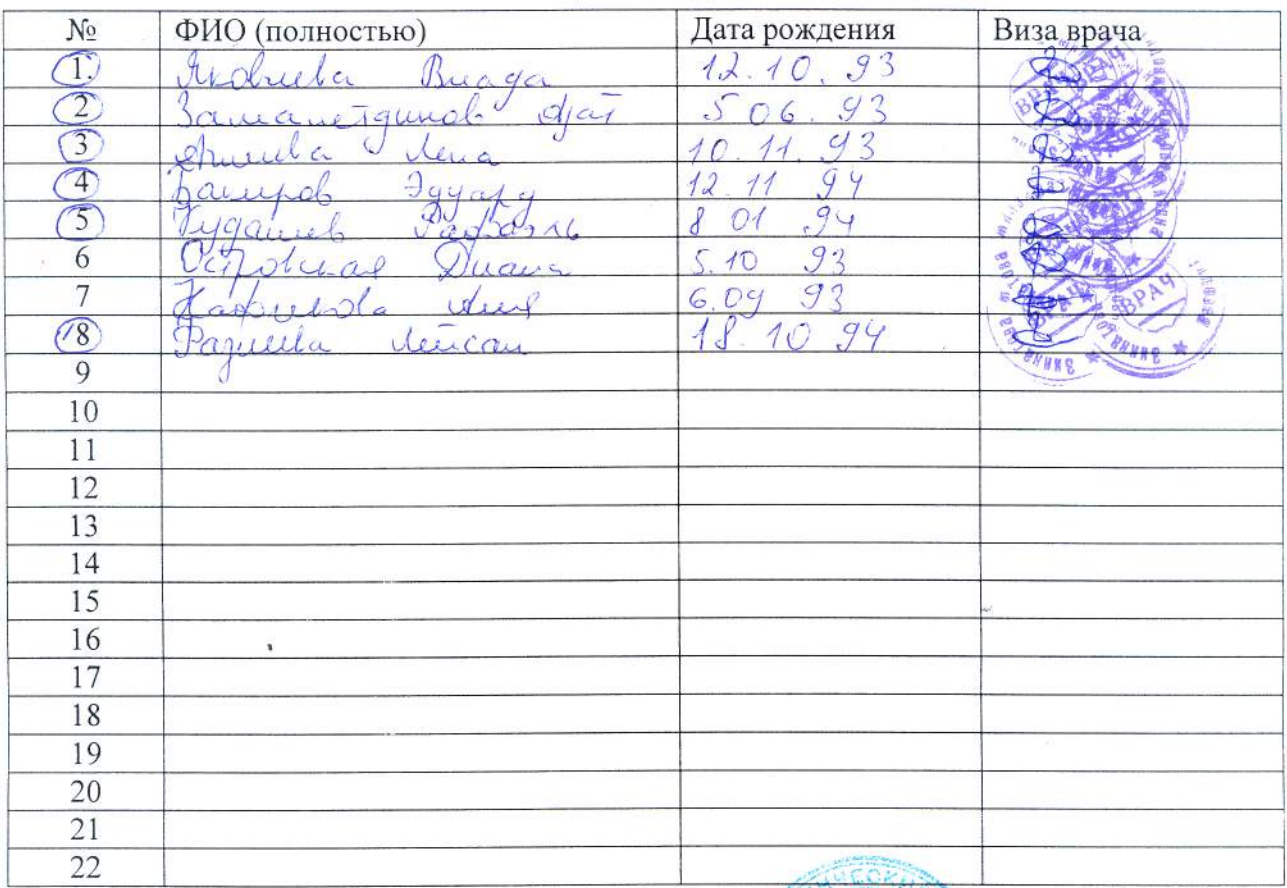 № ФИО (полностью) Дата рождения Виза врача
1. Яковлева Влада 12.10.93
2 Замалетдинов Азат 5 06. 93
3 Лена 10.11.93
4 Бакиров Эдуард 12.11 94
5 Кудашев Рафаэль 8 01 .94
6 Островская Диана 5.10 93
7 Нафикова Аня 6.09 93
8 Фазлыева Лейсан 18.10 94
9
10
11
12
13
14
15
16
17
18
19
20
21
22
ВРАЧ
ВРАЧ